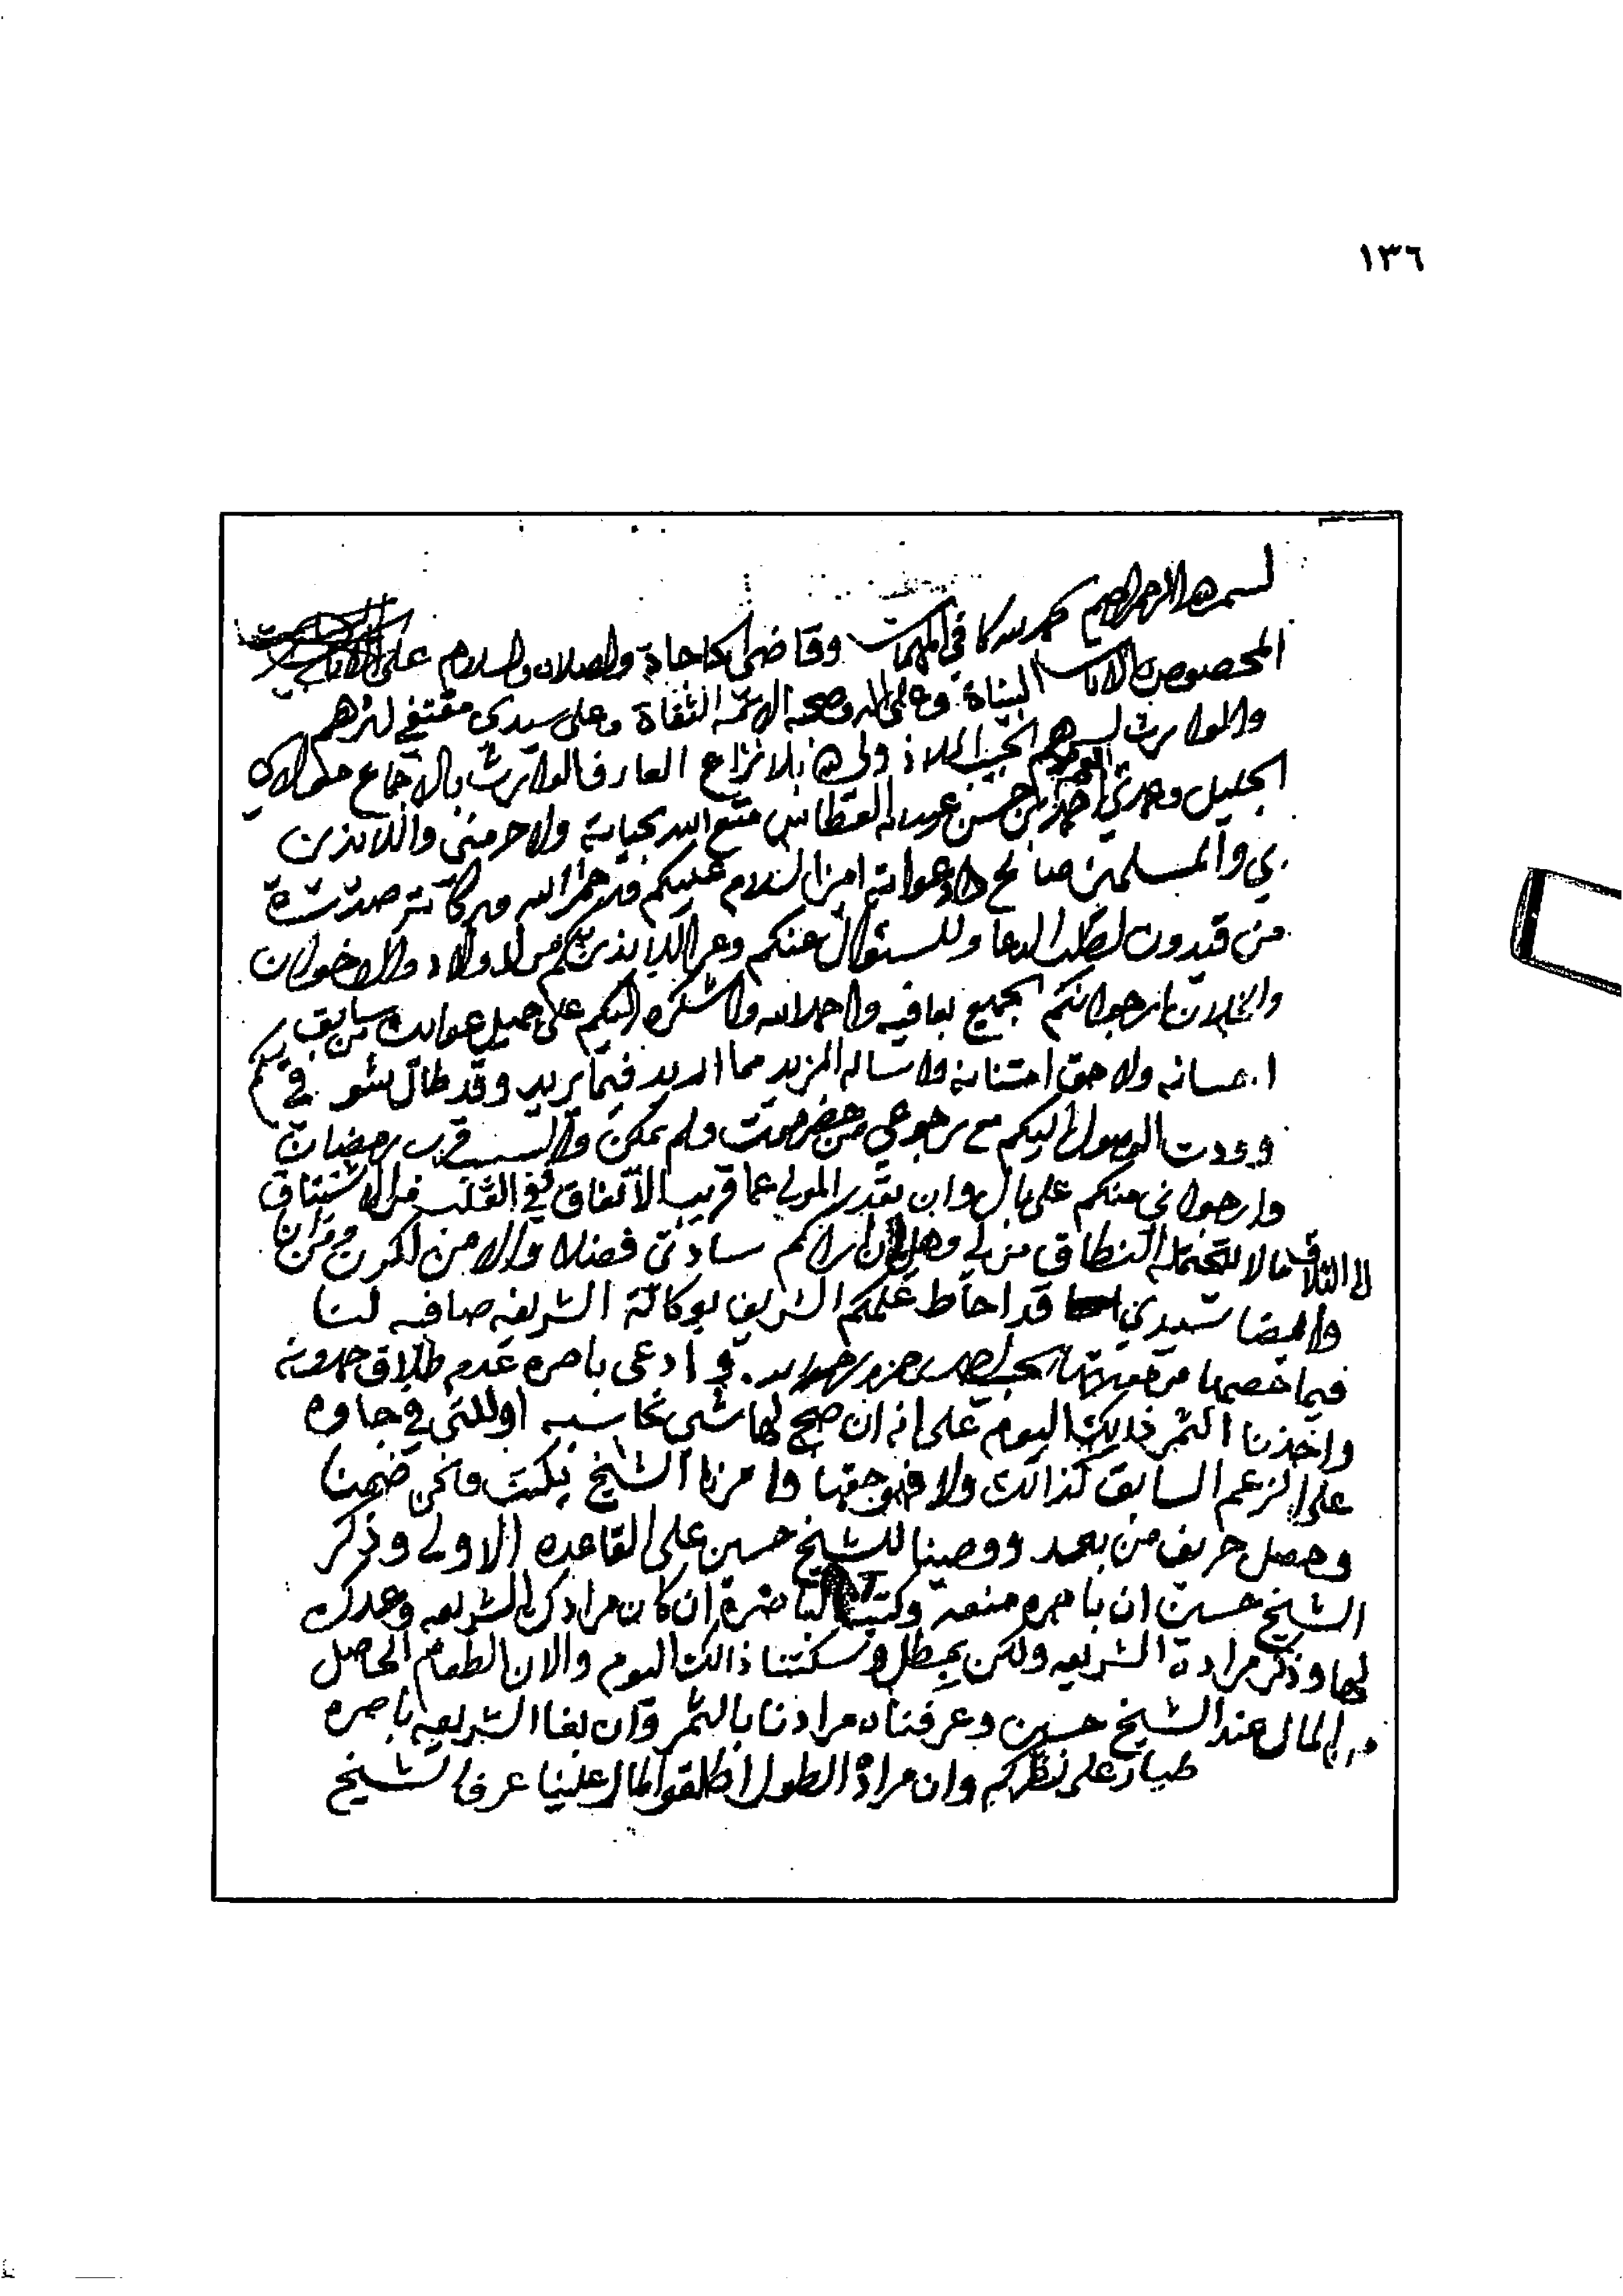 ١٣٦
بسم الله الرحمن الرحيم حمد لله كافي المهمات وقاضي الحاجاة والصلاة والسلام على
المخصوص بالايات البيناة وعلى اله وصحبه الائمه الثقاة وعلى سيدي مقتفي اثرهم
والوارث لسرهم الحبيب الملاذ ولي الله بلا نزاع العارف الوارث بالاجماع مولاي
الجليل وعمدتي احمد بن حسن بن عبدالله العطاس متع الله بحياته ولا حرمني واللايذين
بي والمسلمين صالح دعواته امين السلام عليكم ورحمة الله وبركاته صدرت
من قيدون لطلب الدعا وللسئوال عنكم وعن اللايذين بكم من الاولاد والاخوان
والخلان ارجوا انكم الجميع بعافيه واحمد الله واشكره اليكم على جميل عوايده سابق
احسانه ولاحق امتنانه واساله المزيد مما اريد فيما يريد وقد طال شوقي اليكم
ووددت الوصول اليكم مع رجوعي من حضرموت ولم يمكن والسبب قرب رمضان
وارجوا اني منكم على بال وان يقدر المولى عما قريب الاتفاق ففي القلب من الاشتياق
الى التلاق ما لا تحتمله النطاق من لي وهل ان اراكم سادتي فضلا والامن
وايضا سيدي قد احاط علمكم الشريف بوكالة الشريفه صافيه لنا
فيما خصها من وادعى باصره عدم طلاق
واخذنا الثمر ذلك اليوم على انه ان صح لها شي نحاسبه اوللتي في جاوه
على الزعم السابق كذالك ولا فهو حقنا وامرنا الشيخ يكتب ونحن ضمنا
وحصل خريف من بعد ووصينا للشيخ حسين على القاعده الاولى وذكر
الشيخ حسين ان باصره منعه وكتبنا لباصرة ان كان مرادك الشريعه وعدك
لها وذكر مراده الشريعه ولكن يمطل وسكتنا ذالك اليوم والان الطعام الحاصل
من المال عند الشيخ حسين وعرفناه مرادنا بالثمر وان بغا الشريعه باصره
على نظركم وان مراده الطول اطلقوا المال علينا عرفنا الشيخ